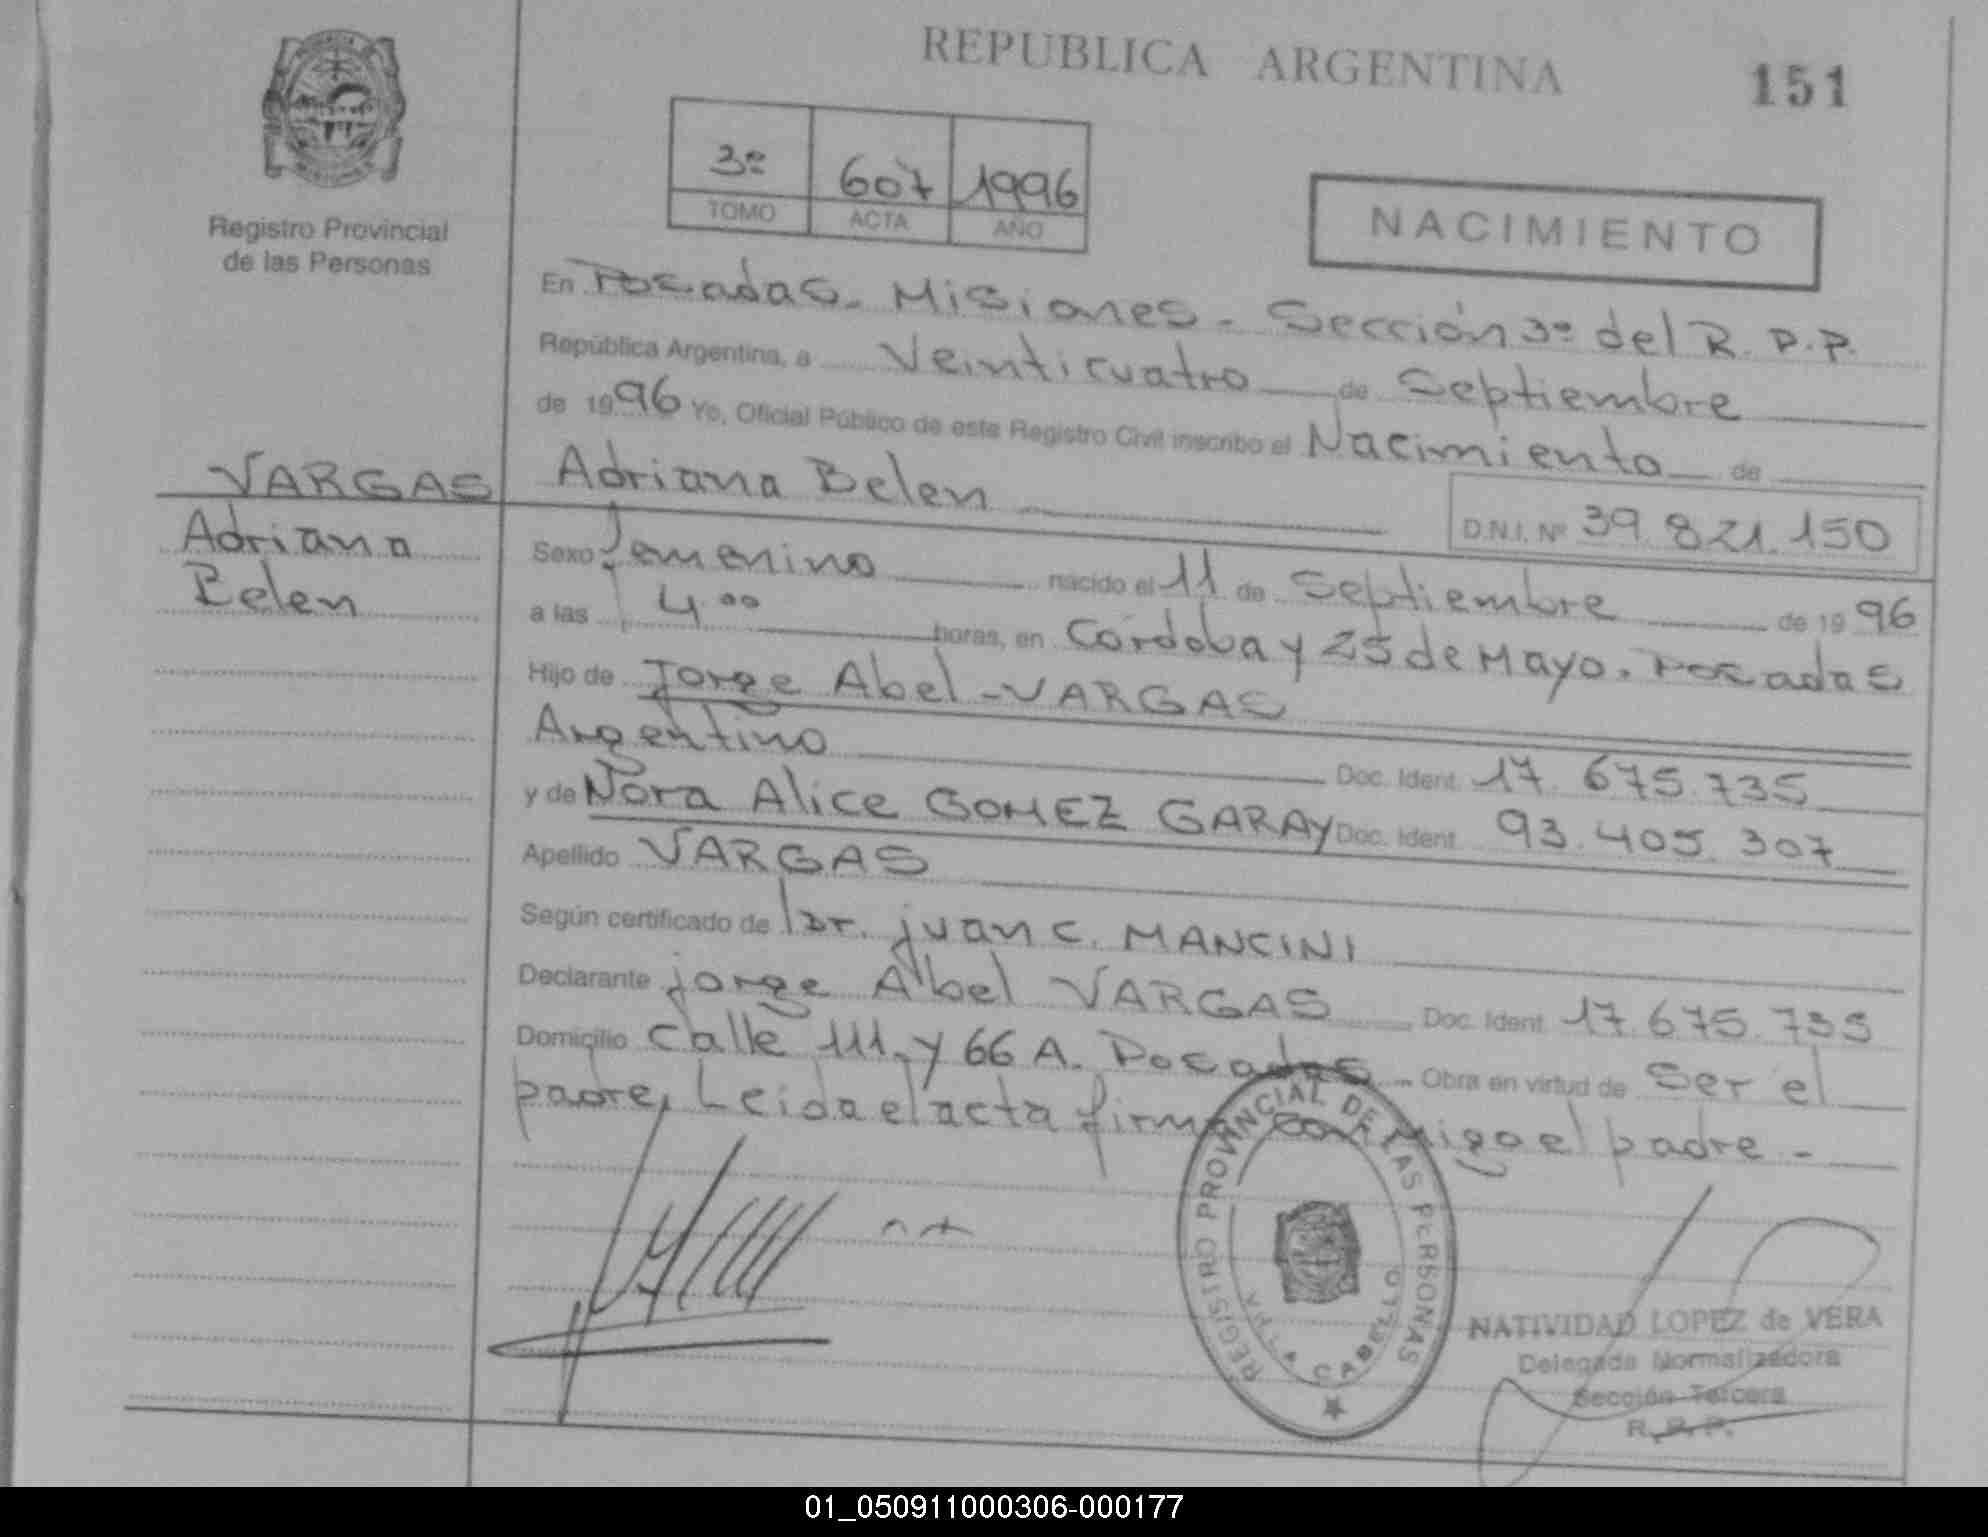 REPUBLICA ARGENTINA
151
3º 607 1996
TOMO ACTA AÑO
NACIMIENTO
Registro Provincial
de las Personas
En Posadas. Misiones - Sección 3º del R. P. P.
República Argentina, a Veinticuatro de Septiembre
de 1996 Yo, Oficial Público de este Registro Civil inscribo el Nacimiento de
VARGAS Adriana Belen
D.N.I. Nº 39.821.150
Adriana
Belen
Sexo femenino nacido el 11 de Septiembre de 1996
a las 4.00 horas, en Córdoba y 25 de Mayo. Posadas
Hijo de Jorge Abel - VARGAS
Argentino Doc. Ident. 17.675.735
y de Nora Alice GOMEZ GARAY Doc. Ident. 93.405.307
Apellido VARGAS
Según certificado de Dr. juan C. MANCINI
Declarante jorge Abel VARGAS Doc. Ident. 17.675.735
Domicilio Calle 111 y 66 A. Posadas Obra en virtud de Ser el
padre, Leida el acta firma conmigo el padre -
REGISTRO PROVINCIAL DE LAS PERSONAS
VILLA CABELLO
NATIVIDAD LOPEZ de VERA
Delegada Normalizadora
Sección Tercera
R.P.P.
01_050911000306-000177